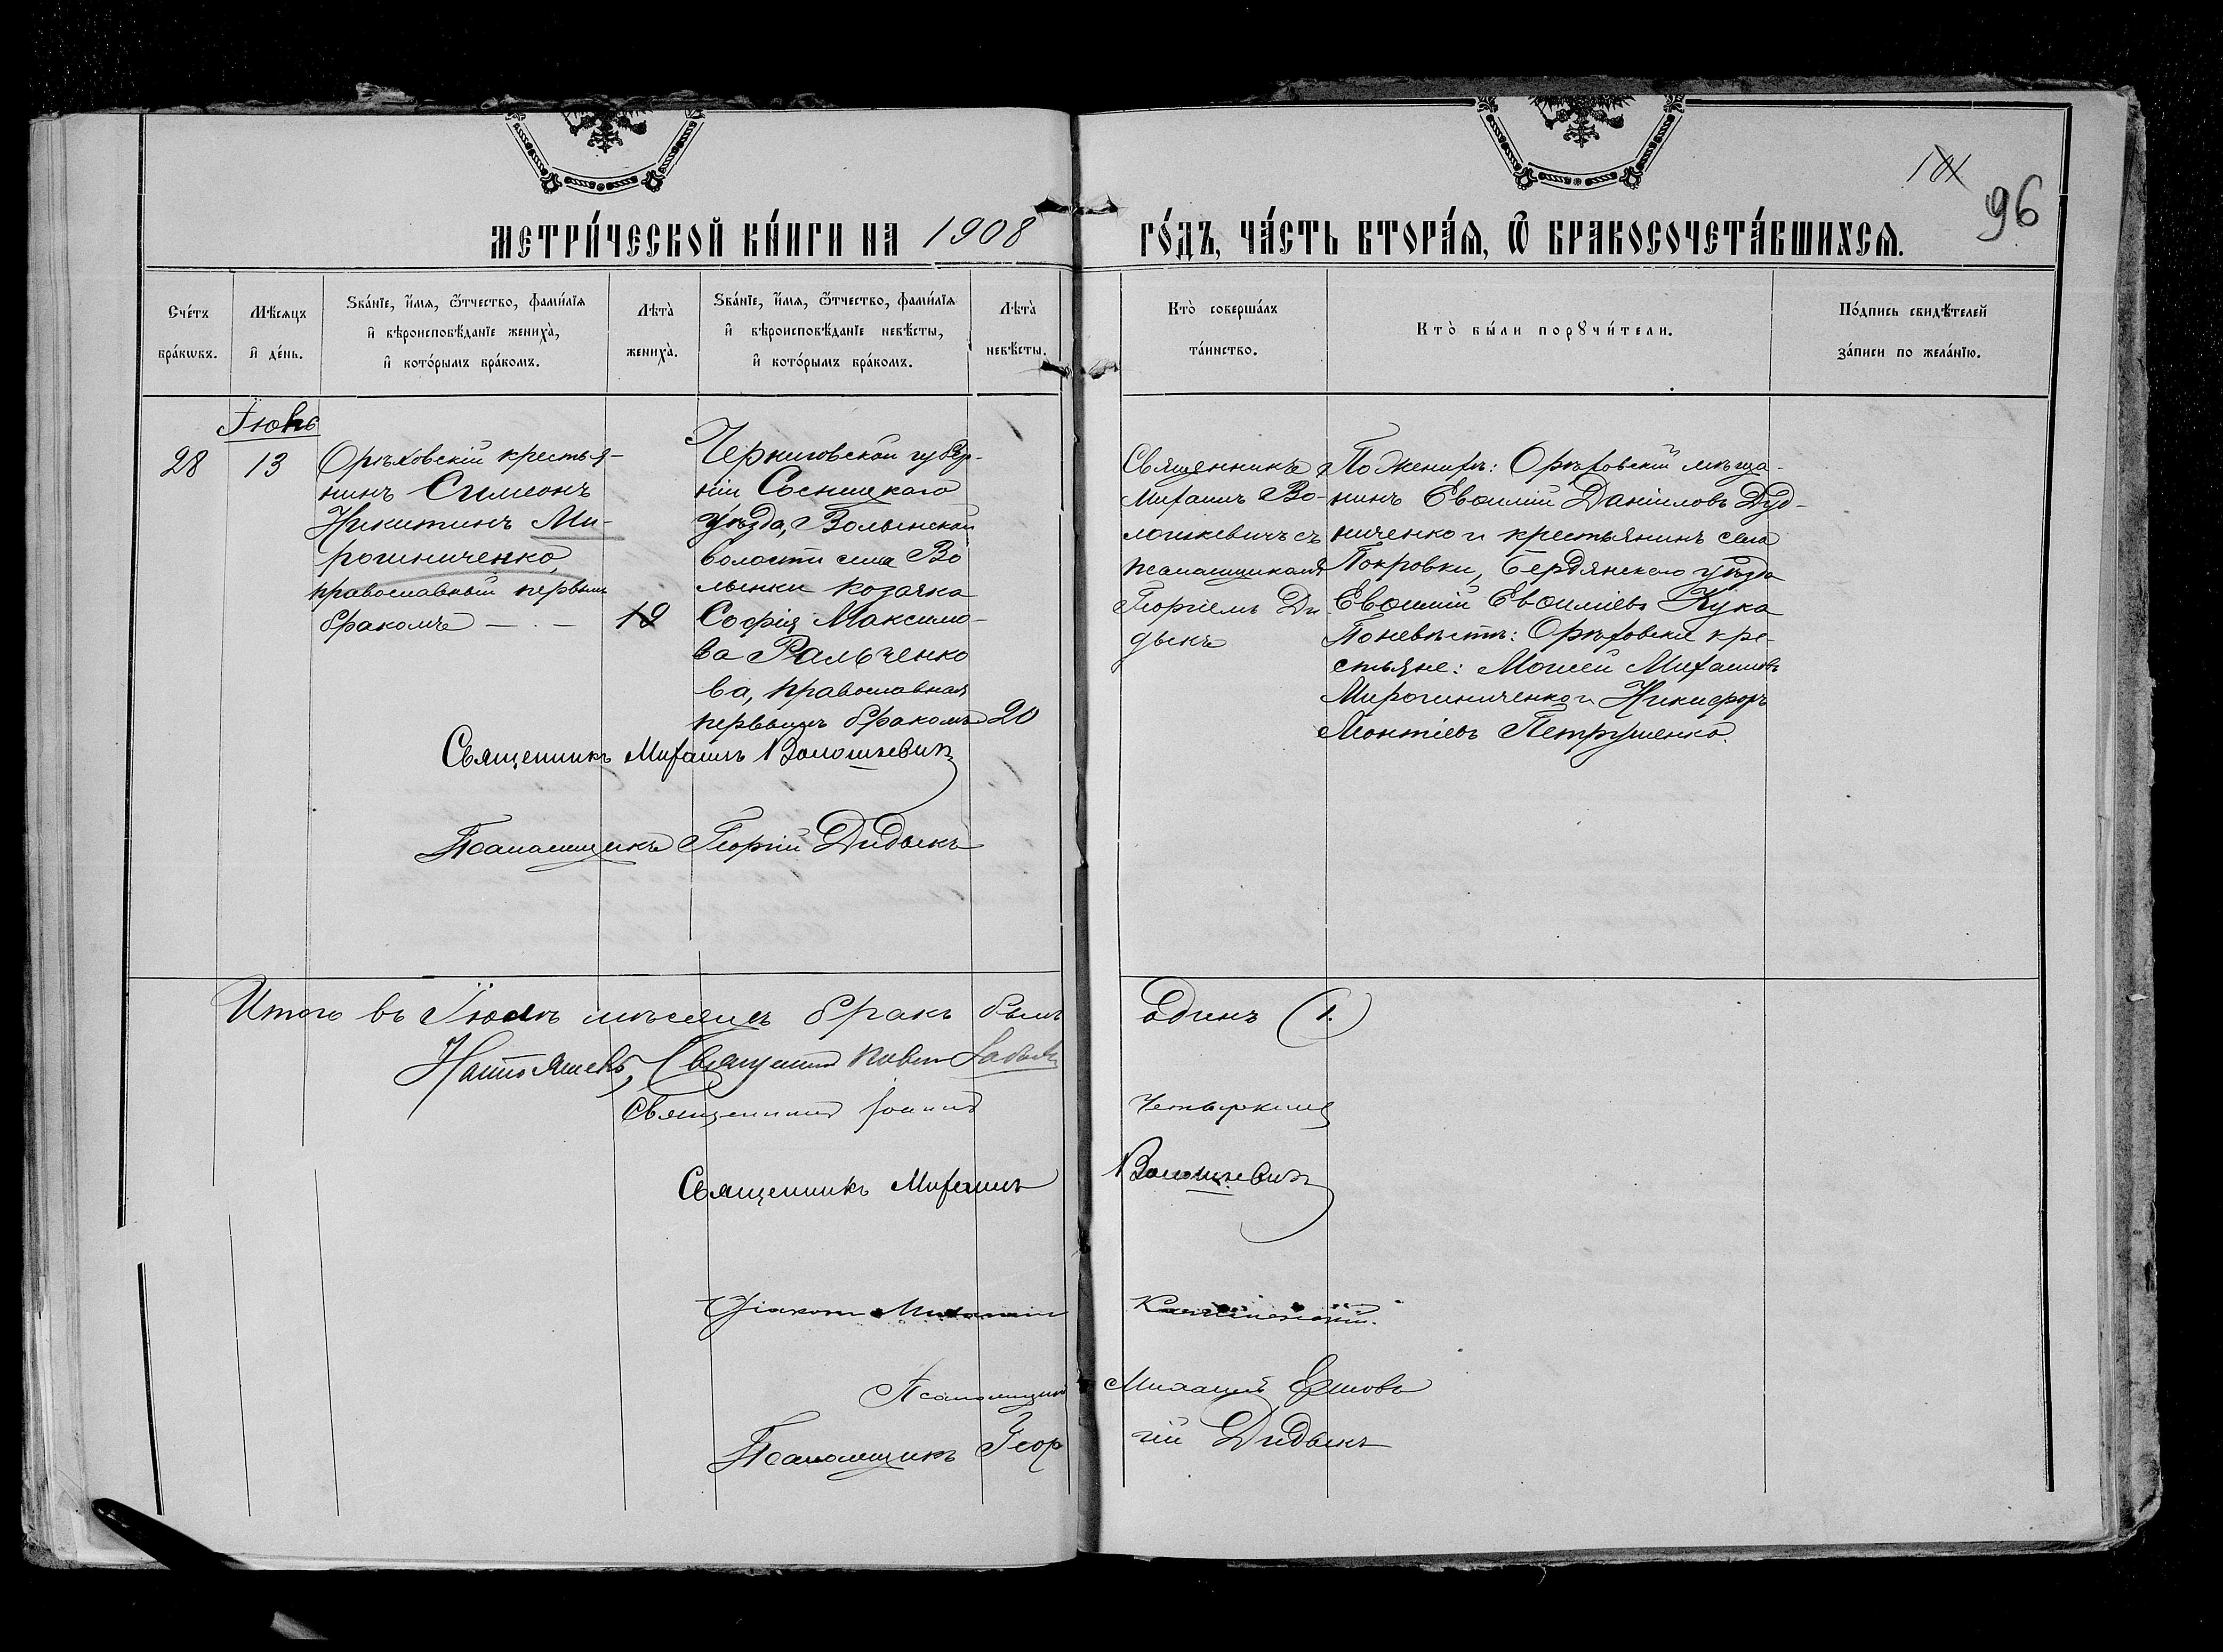 101
96
МЕТРИ́ЧЕСКОЙ КНИ́ГИ НА 1908 ГО́ДЪ, ЧА́СТЬ ВТОРА́Я, Ѿ БРАКОСОЧЕТА́ВШИХСЯ.
Сче́тъ бра́кѡвъ.
Мѣ́сяцъ и҆ де́нь.
Ѕва́нїе, и҆́мя, ѻ҆́тчество, фами́лїя
и҆ вѣроисповѣ́данїе жениха̀,
и҆ кото́рымъ бра́комъ.
Лѣта̀ жениха̀.
Ѕва́нїе, и҆́мя, ѻ҆́тчество, фами́лїя
и҆ вѣроисповѣ́данїе невѣ́сты,
и҆ кото́рымъ бра́комъ.
Лѣта̀ невѣ́сты.
Кто̀ соверша́лъ
та́инство.
Кто̀ бы́ли порꙋчи́тели.
По́дпись свидѣ́телей
за́писи по жела́нїю.
Іюнь
28
13
Орѣховскій крестья-
нинъ Симеонъ
Никитинъ Ми-
рошниченко,
православный первым
бракомъ — . —
19
Черниговской губер-
ніи Сосницкаго
уѣзда, Волынской
волости села Во
лынки козачка
Софія Максимо-
ва Рольченко
ва, православная
первымъ бракомъ
20
Священникъ
Михаилъ Во-
лошкевичъ съ
псаломщикомъ
Георгіемъ Ди
дыкъ
По женихѣ: Орѣховскій мѣща-
нинъ Евѳимій Даніиловъ Дуд-
ниченко и крестьянинъ села
Покровки, Бердянскаго уѣзда
Евѳимій Евѳиміевъ Кука
По невѣстѣ: Орѣховскіе кре-
стьяне: Моисей Михаиловъ
Мирошниченко и Никифоръ
Леонтіевъ Петрушенко.
Священникъ Михаилъ Волошкевичъ
Псаломщикъ Георгій Дидыкъ
Итого въ Іюнѣ мѣсяцѣ бракъ былъ Одинъ (1.)
Священникъ Іоаннъ
Священникъ Михаилъ Волошкевичъ
Діаконъ
Псаломщикъ Михаилъ Ершовъ
Псаломщикъ Георгій Дидыкъ